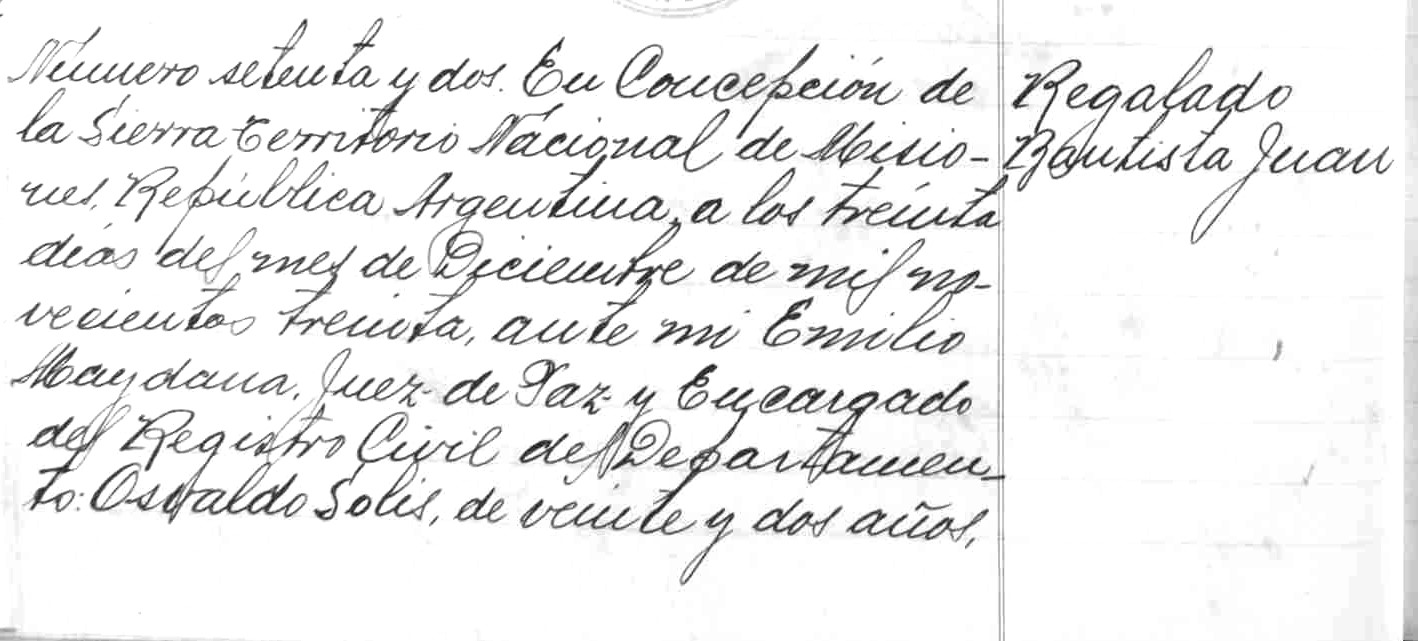 Número setenta y dos. En Concepción de
la Sierra Territorio Nacional de Misio-
nes, República Argentina, a los treinta
días del mes de Diciembre de mil no-
vecientos treinta, ante mi Emilio
Maydana, Juez de Paz y Encargado
del Registro Civil del Departamen-
to: Osvaldo Solis, de veinte y dos años,
Regalado
Bautista Juan